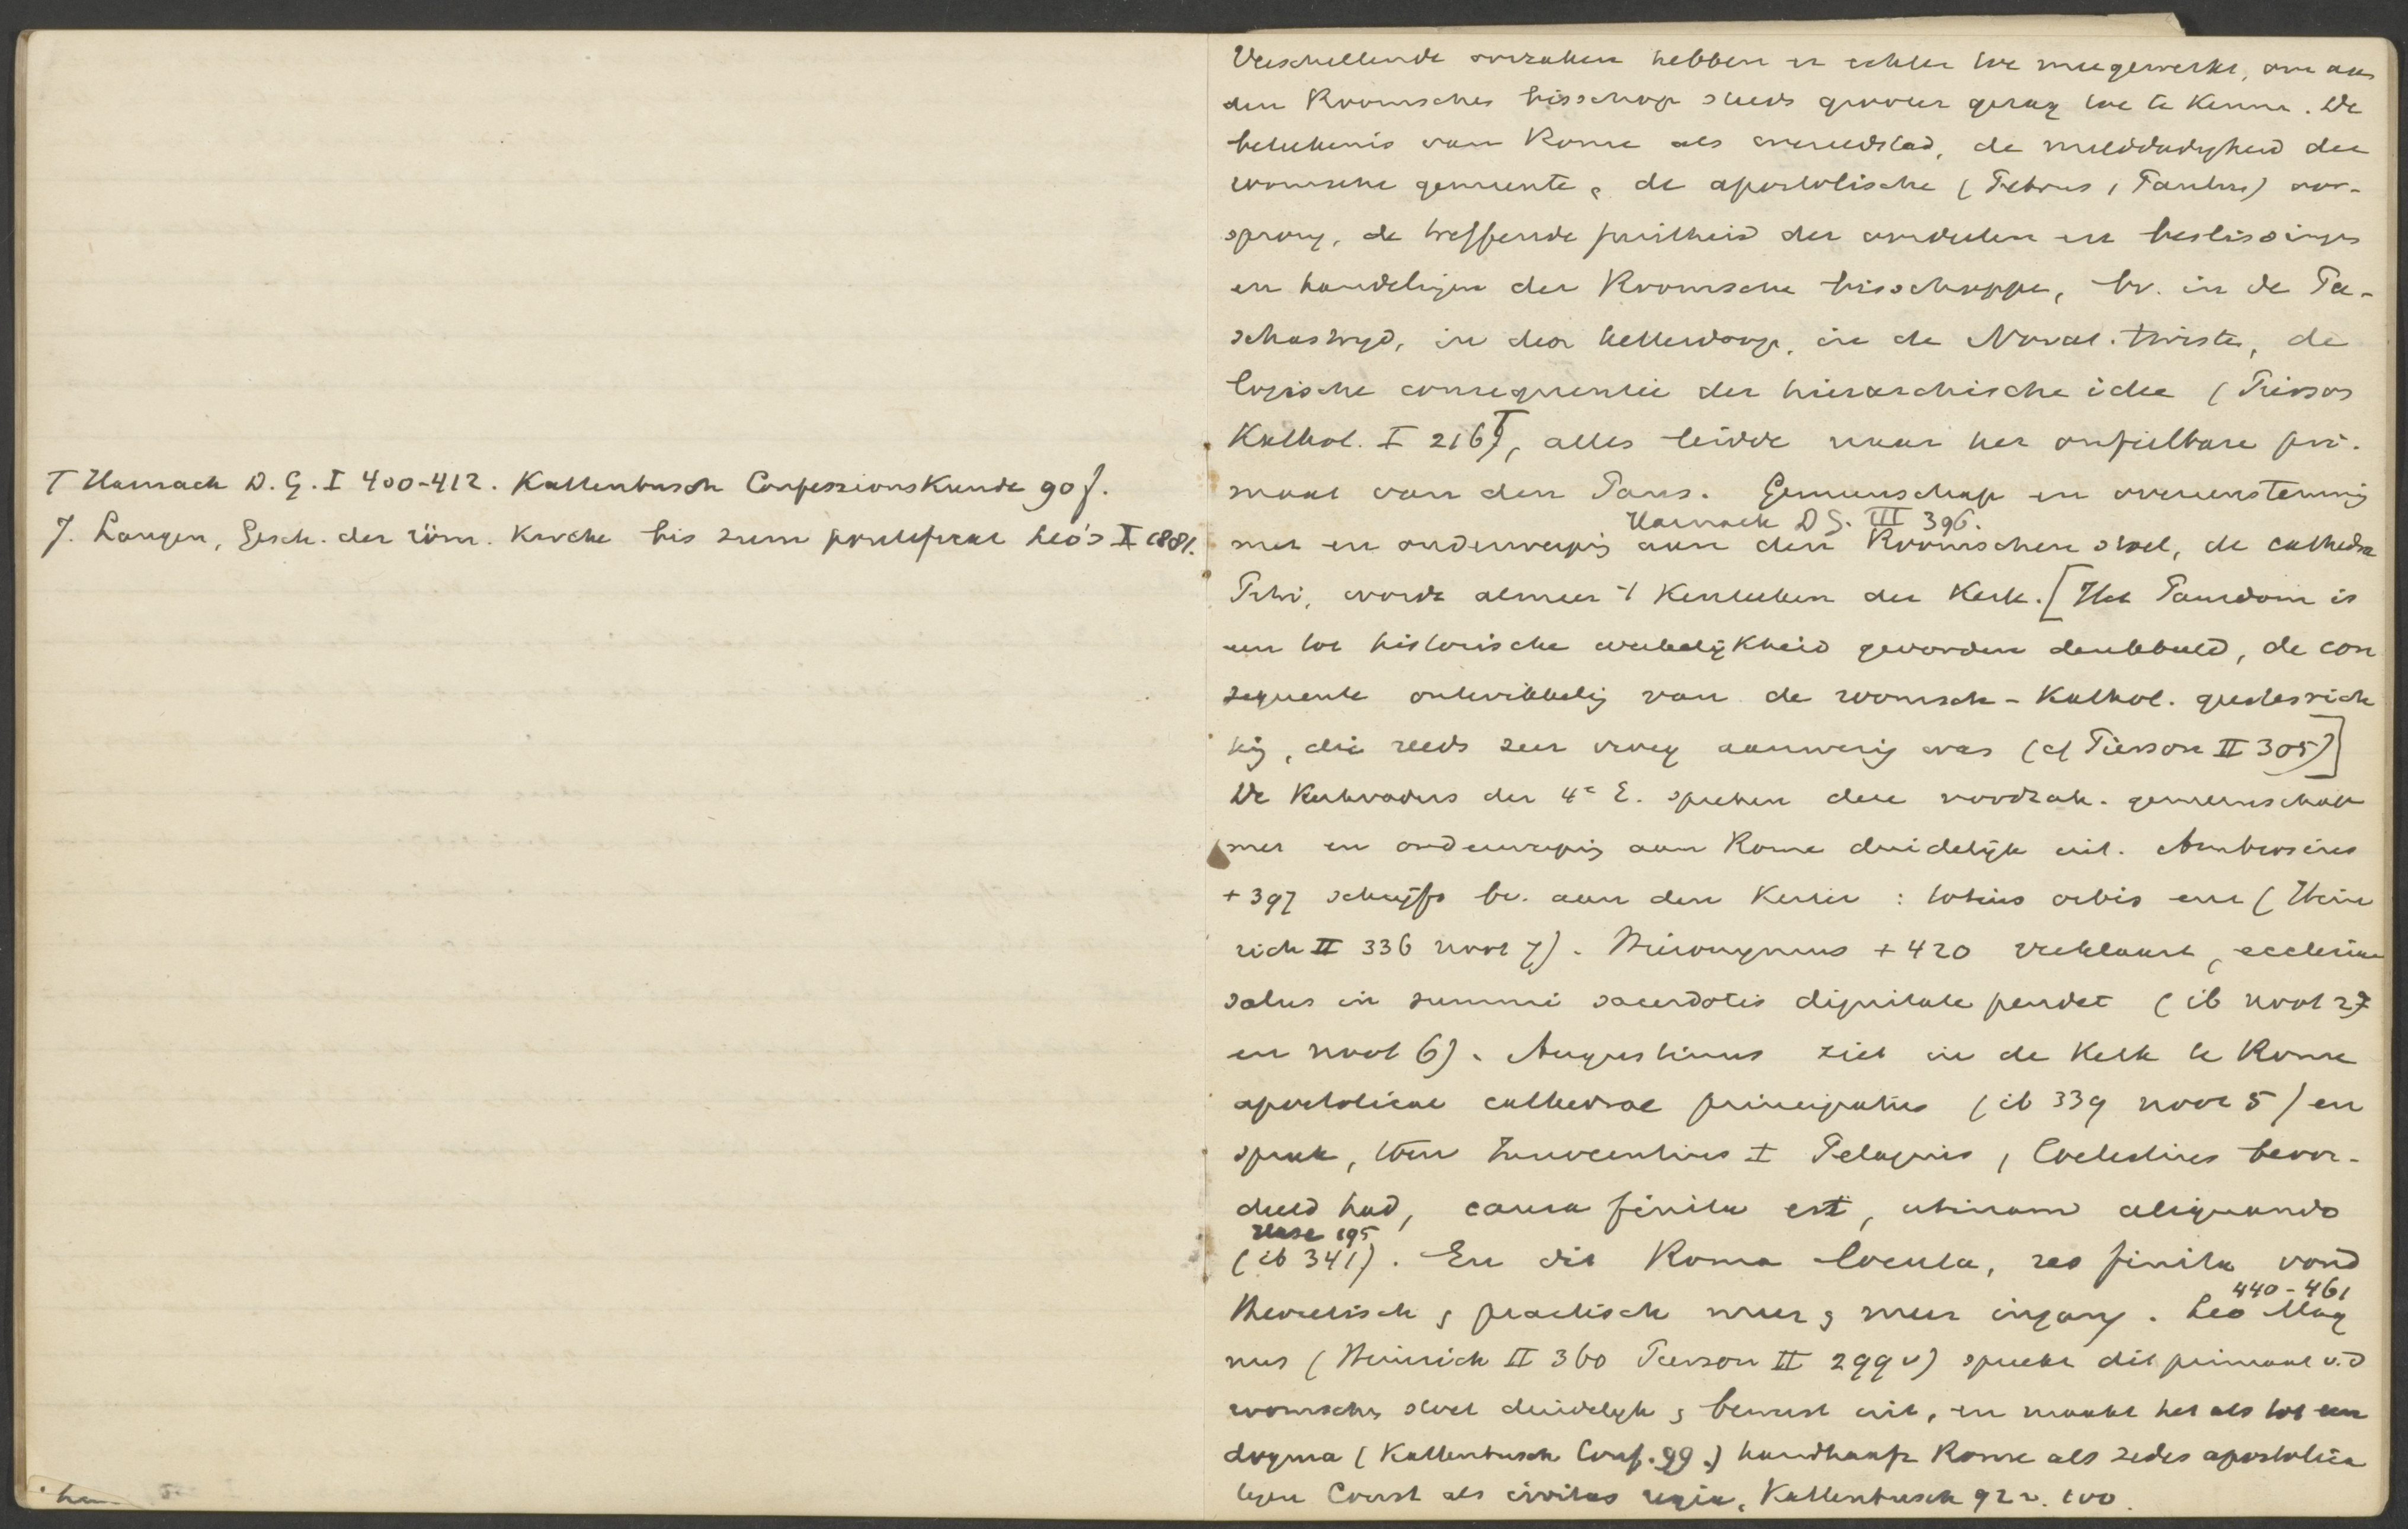 T Harnack D. G. I 400-412. Kattenbusch Confessionskunde 90 f.
J. Langen, Gesch. der röm. Kirche bis zum pontifikat Leo's I 1881.
Verschillende oorzaken hebben er echter toe meegewerkt, om aan
den Roomschen bisschop steeds grooter gezag toe te kennen. De
beteekenis van Rome als wereldstad, de milddadigheid der
roomsche gemeente, de apostolische (Petrus, Paulus) oor-
sprong, de treffende juistheid der oordeelen en beslissingen
en handelingen der Roomsche bisschoppen, bv. in de Pa-
schastrijd, in den ketterdoop, in de Novat. twisten, de
logische consequentie der hierarchische idee (Pierson
Kathol. I 216) T, alles leidde naar het onfeilbare pri-
maat van den Paus. Gemeenschap en overeenstemming
Harnack DG. III 396.
met en onderwerping aan den Roomschen stoel, de cathedra
Petri, wordt almeer 't kenteeken der Kerk. [Het Pausdom is
een tot historische werkelijkheid geworden denkbeeld, de con
sequente ontwikkeling van de roomsch-Kathol. geestesrich
ting, die reeds zeer vroeg aanwezig was (cf Pierson II 305)]
De Kerkvaders der 4e E. spreken deze noodzak. gemeenschap
met en onderwerping aan Rome duidelijk uit. Ambrosius
+ 397 schrijft bv. aan den Keizer : totius orbis enz (Hein
rich II 336 noot 7). Hieronymus + 420 verklaart, ecclesiae
salus in summi sacerdotis dignitate pendet (ib noot 27
en noot 6). Augustinus ziet in de Kerk te Rome
apostolicae cathedrae principatus (ib 339 noot 5) en
sprak, toen Innocentius I Pelagius, Coelestius veroor-
deeld had, causa finita est, utinam aliquando
Hase 195
(ib 341). En dit Roma locuta, res finita vond
440-461
theoretisch & practisch meer & meer ingang. Leo Mag
nus (Heinrich II 360 Pierson II 299 v) spreekt dit primaat v.d
roomschen stoel duidelijk & bewust uit, en maakt het als tot een
dogma (Kattenbusch Conf. 99.) handhaaft Rome als sedes apostolica
tegen Const als civitas regia, Kattenbusch 92 v. 100.